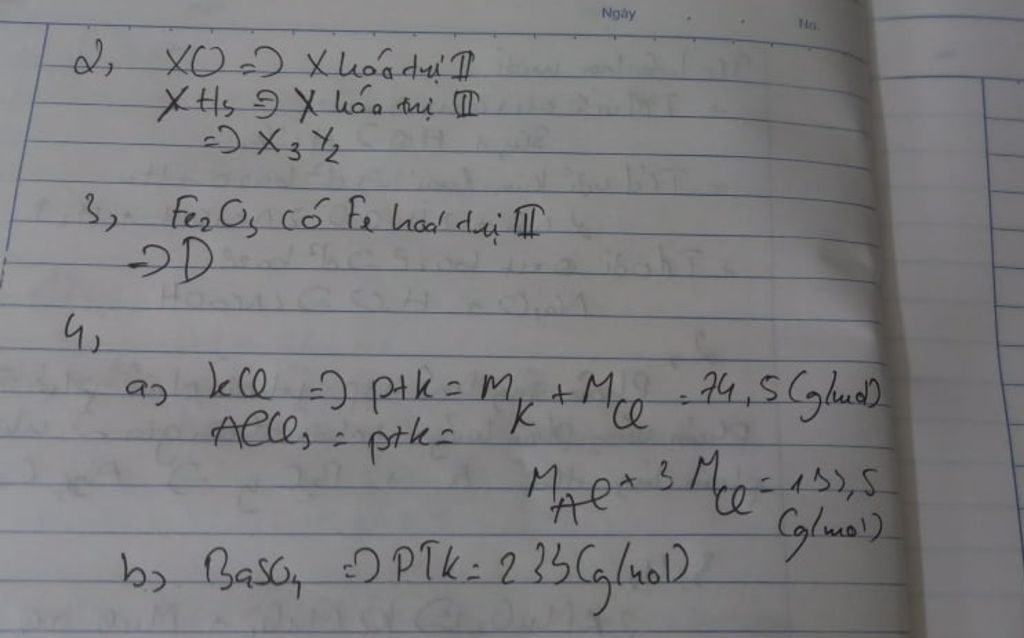 Ngày
No.
2, XO => X hóa trị II
XH₃ => X hóa trị III
=> X₃Y₂
3, Fe₂O₃ có Fe hoá trị III
=> D
4,
a, KCl => ptk = M_K + M_Cl = 74,5 (g/mol)
AlCl₃ = ptk =
M_Al + 3 M_Cl = 133,5
(g/mol)
b, BaSO₄ => PTK = 233 (g/mol)